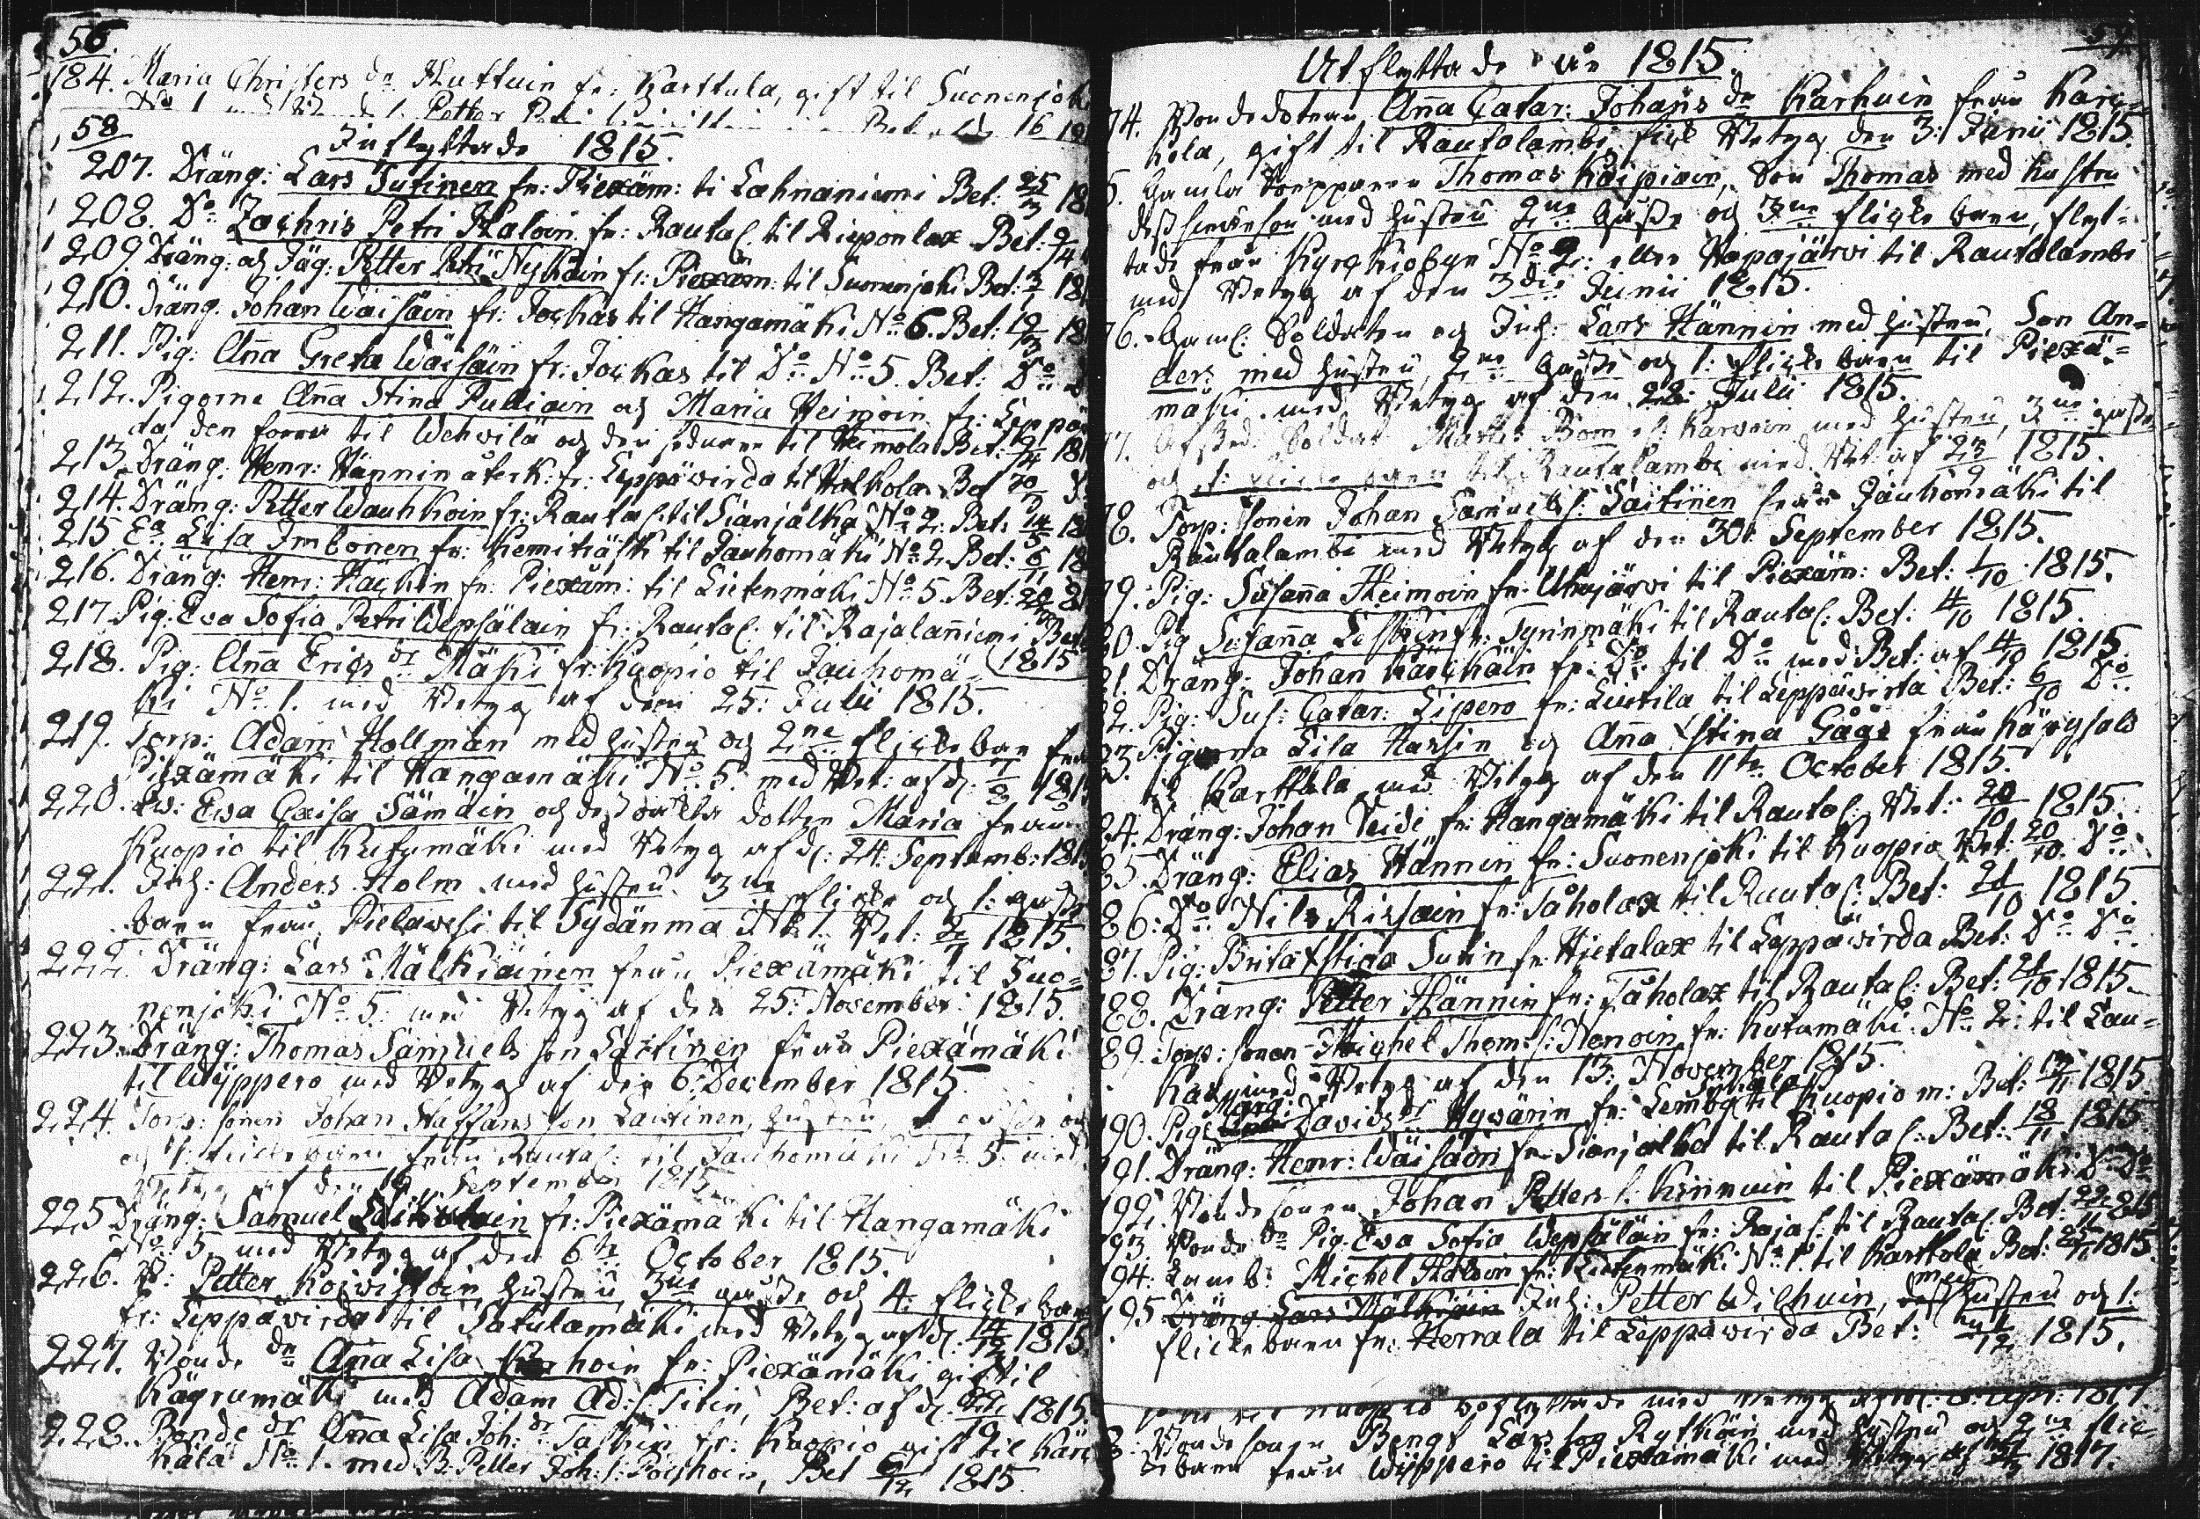 56.
184. Maria Christers dr Huttuin fr: Karttula, gift til Suonenjoki
58
Inflyttade 1815.
207. Dräng: Lars Sutinen fr: Piexäm: ti Lahnaniemi Bet: 25/3 18
208. Do Zachris Petri Haloin fr: Rautal: til Rieponlax Bet: 9/4
209 Dräng: og Jäg: Petter Petri Nyhäin fr: Piexäm: til Suonenjoki Bet: 181
210. Dräng. Johan Wäisäin fr: Jockas til Kangamäki No 6. Bet: 19/3 18
211. Pig: Aña Greta Wäisäin fr: Jockas til Do No 5. Bet: Do
212. Pigorne Aña Stina Pulliain og Maria Heimoin fr: Leppä
da den förra til Wehwilä og den sednare til Heimola Bet: 181
213. Dräng. Henr: Hännin återk: fr: Leppäwirda til Halkola Bet
214. Dräng: Petter Wauhkoin fr: Rautal: til Sianjalka No 2. Bet: 14/5 18
215 Ea Lisa Imbonen fr: Kemiträsk til Jauhomäki No 2. Bet: 6/11 18
216. Dräng: Henr: Häckin fr: Piexäm: til Lietenmäki No 5. Bet:
217 Pig: Eva Sofia Petri Wepsäläin fr: Rautal: til Rajalañiemi Bet
1815
218. Pig: Aña Erics dr Mäski fr: Kuopio til Jauhomä-
ki No 1. med Betyg af den 25: Julii 1815.
219. Torp: Adam Hollman med hustru og 2ne flickebarn från
Piexämäki til Kangamäki No 5. med Bet: af d: 7/8 1815
220. Ew: Ewa Caisa Sämäin og des oäkta dotter Maria från
Kuopio til Kutumäki med Betyg af d: 24. Septemb: 1815
221. Inh: Anders Holm med hustru 3ne flicke og 1: gosse
barn från Pielawesi til Sydänmä No 1. Bet: 1815.
222. Dräng: Lars Mälkiäinen från Piexämäki til Suo-
nenjoki No 5. med Betyg af den 25: November 1815.
223. Dräng: Thomas Samuels son Laitinen från Piexämäki
til Wyppero med Betyg af den 6: December 1815
224. Torp: sonen Johan Staffans son Laitinen, hustru,
og 1: flickebarn från Rautal: til Jauhomäki No 5 med
Betyg af den 16 September 1815
225 Dräng: Samuel fr: Piexämäki til Kangamäki
No 5 med Betyg af den 6te October 1815.
226. B: Petter Koiwistoin, hustru, 3ne gosse og 4. flickebarn
fr: Leppäwirda til Satulamäki med Betyg af d: 1815
227. Bonde dr Aña Lisa fr: Piexämäki gift til
Käyrumäki med Adam Ad: s: Titin, Bet: af d: 1815.
228. Bonde dr Aña Lisa Joh: dr Taskin fr: Kuopio gift til Kärc
kälä No 1. med B: Petter Joh: s: Pöyhöin, Bet 6/12 1815.
Utflyttade år 1815.
74. Bondedotren Aña Catar: Johañs dr Karhuin från Kärc-
kela, gift til Rautalambi fick Betyg den 3: Junii 1815.
5. Gamla Torpparen Thomas Kaipiain, Son Thomas med hustru
og 3ne flicke barn, flyt-
tade från Kyrckiobyn No 2: eller Vapajärwi til Rautalambi
med Betyg af den 3die Junii 1815.
76. Gaml: Soldaten og Inh: Lars Hännin med hustru, Son An-
ders med hustru, 2ne gosse og 1: flicke barn til Piexä-
mäki med Betyg af den 22: Julii 1815.
77. Afsked: Soldat Matts Bom el: Karwoin med hustru, 3ne gosse
og 1: flicke barn til Rautalambi med Bet: af 1815.
78. Torp: sonen Johan Samuels s: Laitinen från Jauhomäki til
Rautalambi med Betyg af den 30: September 1815.
79. Pig: Susaña Heimoin fr: Uhajärwi til Piexäm: Bet: 1/10 1815.
80. Pig Susaña fr: Tyrinmäki til Rautal: Bet: 4/10 1815.
81. Dräng: Johan Karckäin fr: Do til Do med Bet: af 4/10 1815.
82. Pig: Sus: Catar: Lipero fr: Luukila, til Leppäwirta Bet: 6/10 Do
83. Pigorna Lisa Hassin og Aña Stina Gåås från
til Karttula med Betyg af den 11te October 1815.
84. Dräng: Johan Veide fr: Kangamäki til Rautal: Bet: 20/10 1815.
85. Dräng: Elias Hännin fr: Suonenjoki til Kuopio Bet: 20/10. Do
86: Do Nils Rissain fr: Tåholax til Rautal: Bet: 21/10 1815.
87. Pig: Brita Stina Sutin fr: Hietalax til Leppäwirda Bet: Do Do
188. Dräng: Petter Hännin fr: Tåholax til Rautal: Bet: 21/10 1815.
189. Torp: sonen Michel Thom: s: Nenoin fr: Kutumäki No 2: til Lau-
kas, med Betyg af den 13: November 1815.
190. Pig: Marg: Davids dr Hywärin fr: Lemby til Kuopio m: Bet: 1815
191. Dräng: Henr: Wäisäin fr: Sianjalka til Rautal: Bet: 18/11 1815
192. Bondesonen Johan Petters s: Kinnuin til Piexämäki Do Do
193. Bonde dr Pig: Eva Sofia Wepsäläin fr: Rajal: til Rautal: Bet: 22/11 815
194. Lamb: Michel Haloin fr: Lietenmäki No 1. til Karttula Bet: 25/11 1815
195. Dräng Lars Mälkiäin Inh: Petter Wilhuin, med hustru og 1:
flickebarn fr: Herrala til Leppäwirda Bet: 1815.
Bondesonen Bengt Lars son Rytköin med hustru og 2ne flic-
kebarn från Wyppero til Piexämäki med Betyg af 1817.